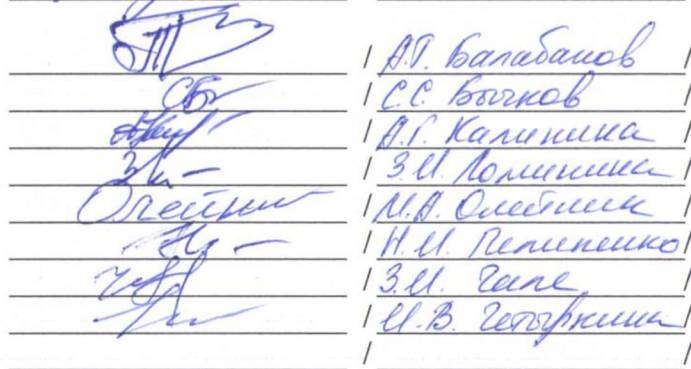 / А.Г. Балабанов /
/ С.С. Бычков /
/ А.Г. Калинина /
/ З.И. Ломинина /
Олейник / М.А. Олейник /
/ Н.И. Пелипенко /
/ З.И. Гапе /
/ И.В. Четыркина /
/ /